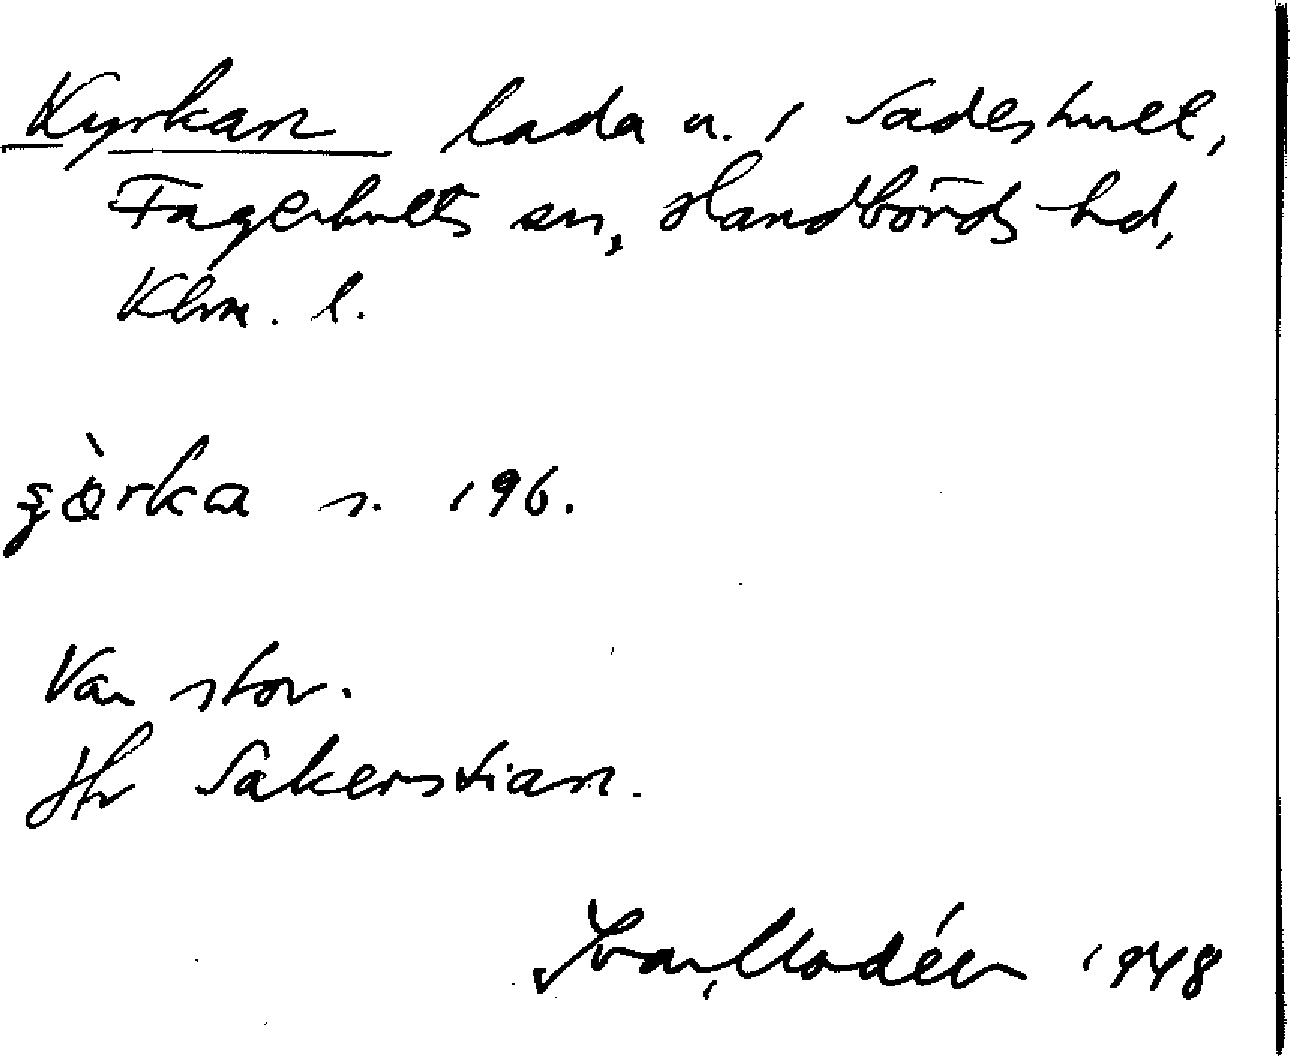 Kyrkan lada n. 1 Sadeshult,
Fagerhults sn, Handbörds hd,
Klm. l.
s. 196.
Var stor.
Jfr Sakerstian.
Ivar Modéer 1948